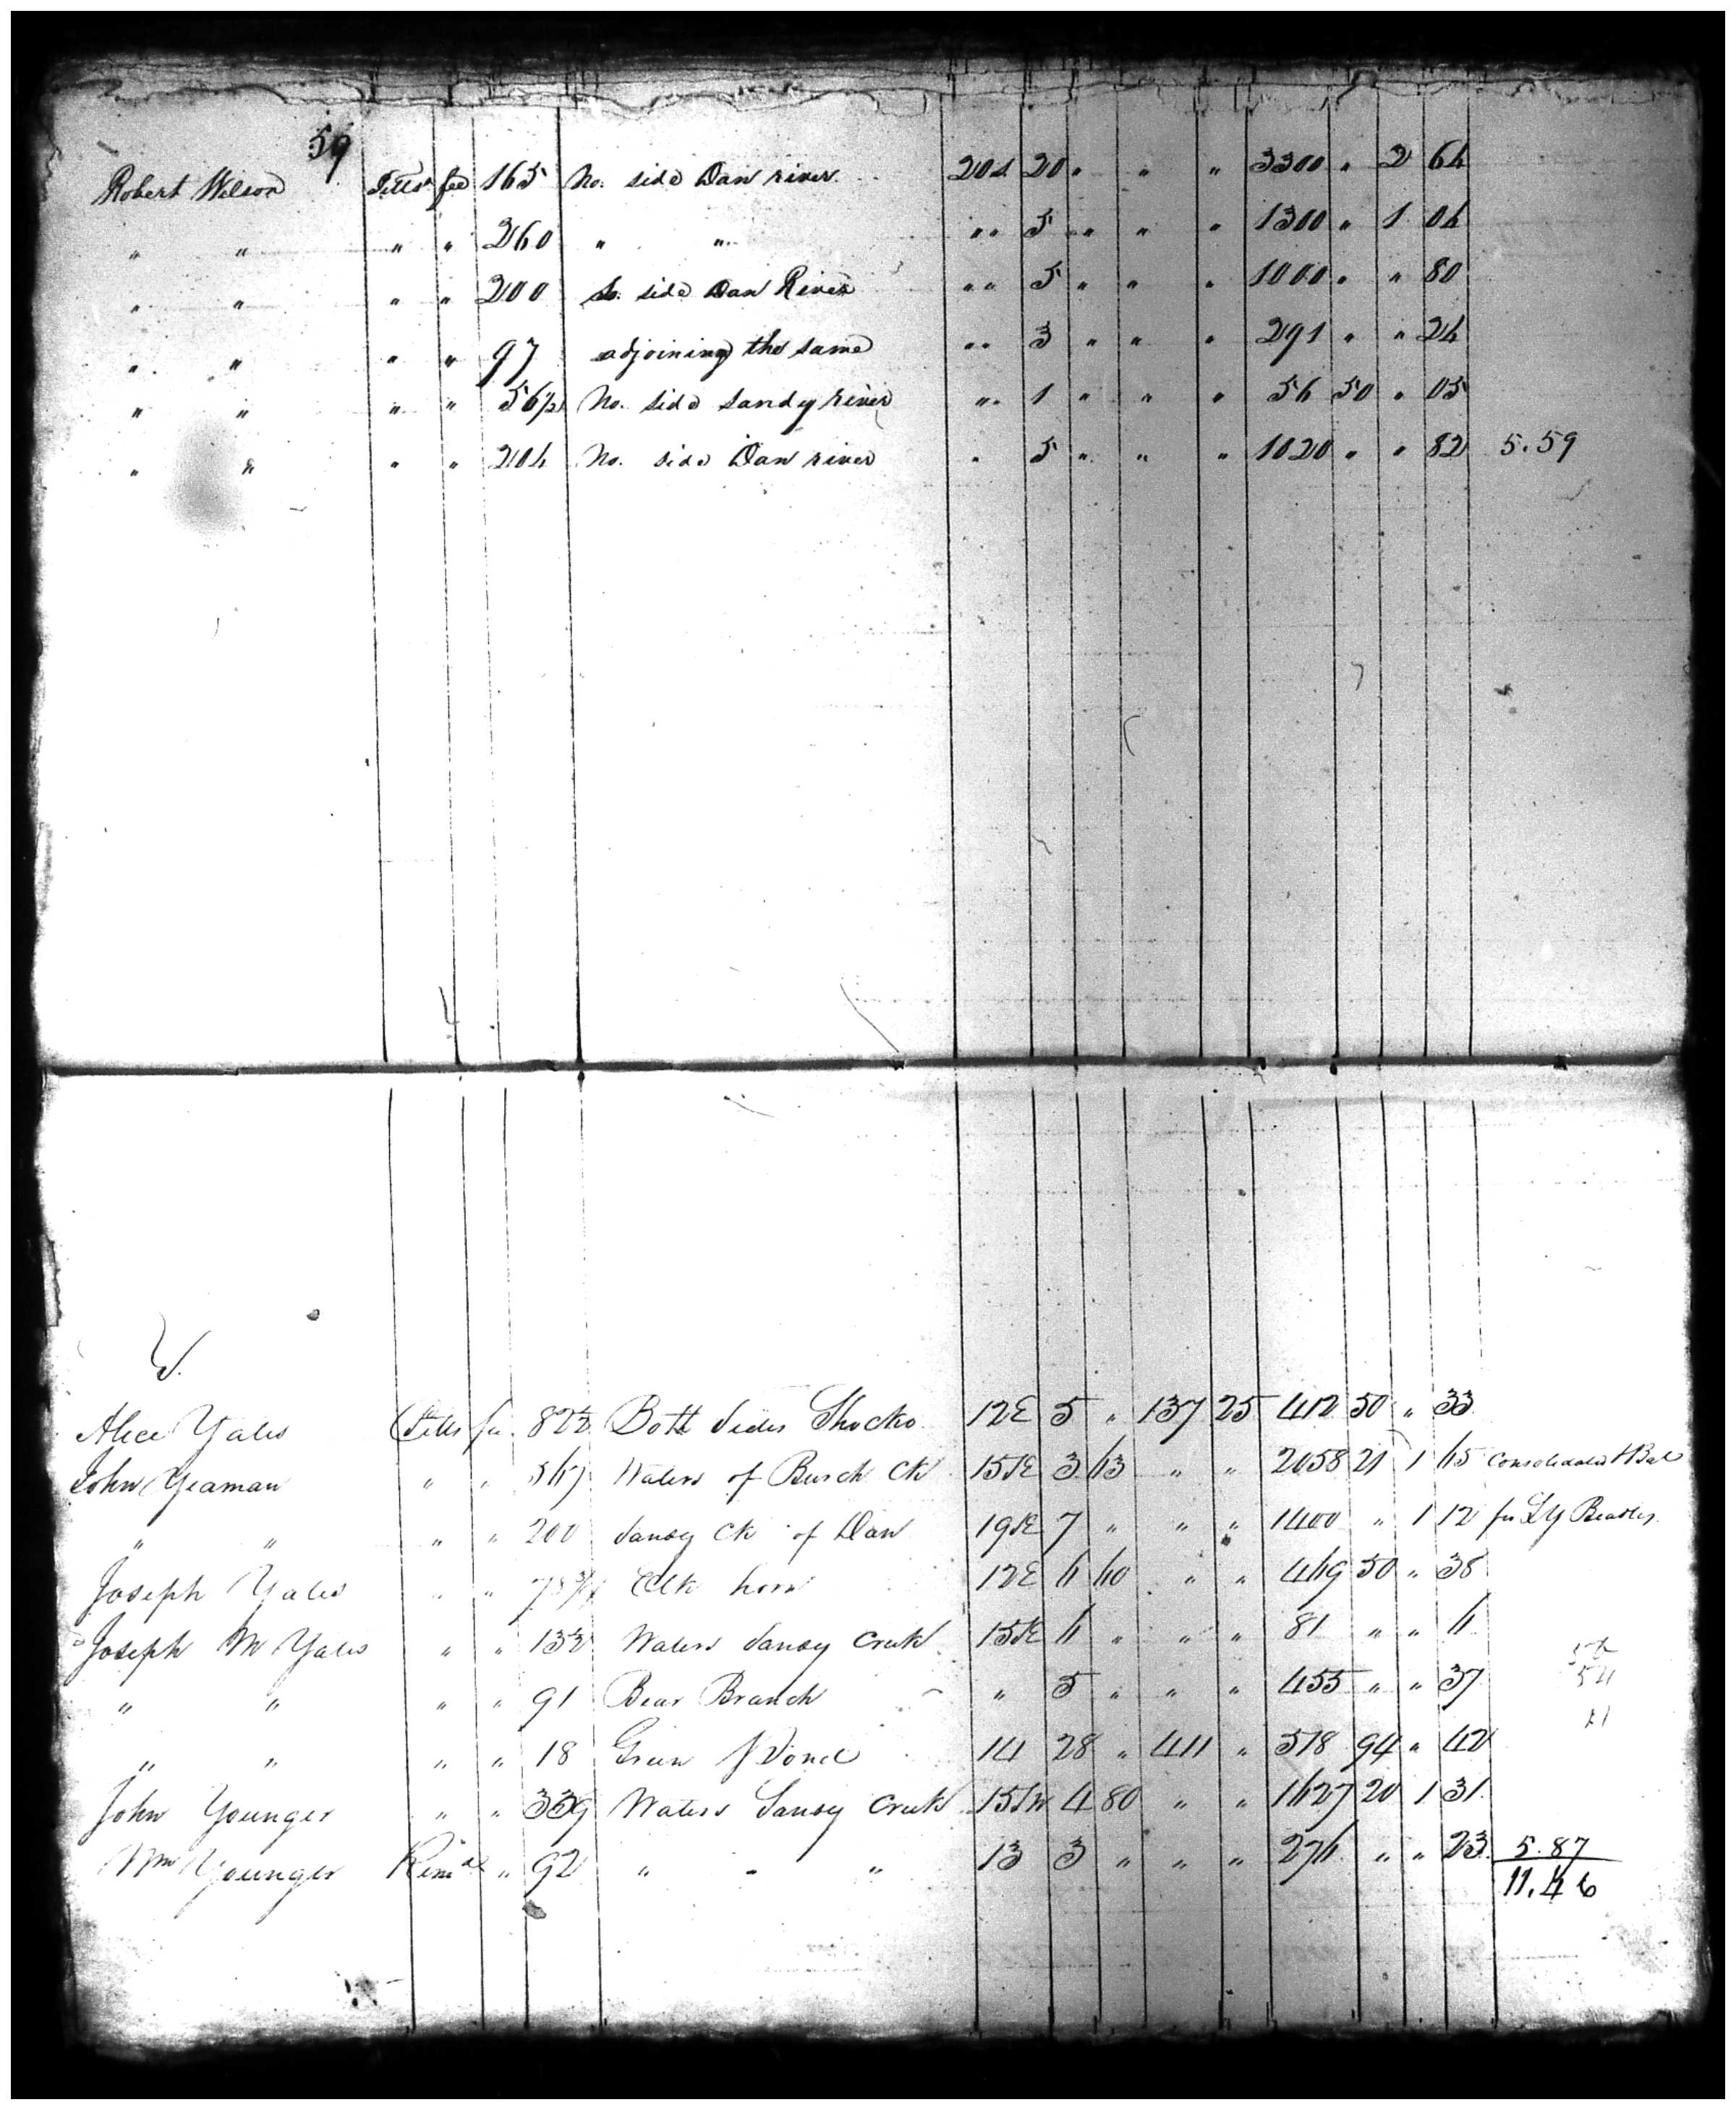 59
Robert Wilson Pittsa fee 165 No. side Dan river 20S 20 " " " 3300 " 2 64
" " " " 260 " " " " 5 " " " 1300 " 1 04
" " " " 200 So. side Dan River " " 5 " " " 1000 " " 80
" " " " 97 adjoining the same " " 3 " " " 291 " " 24
" " " " 56½ No. side Sandy river " " 1 " " " 56 50 " 05
" " " " 204 No. side Dan river " 5 " " " 1020 " " 82 5.59
Y.
Alice Yates Pitts fee 82½ Both Sides Shocko 12E 5 " 137 25 412 50 " 33
John Yeaman " " 567 Waters of Burch Ck 15SE 3 63 " " 2058 21 1 65 Consolidated &
" " " " 200 Sandy Ck of Dan 19SE 7 " " " 1400 " 1 12 fr
Joseph Yates " " 78¼ Elk horn 12E 6 60 " " 469 50 " 38
Joseph M Yates " " 13½ Waters Sandy Creek 15SE 6 " " " 81 " " 6
" " " " 91 Bear Branch " 5 " " " 455 " " 37
" " " " 18 Green Pond 14 28 " 411 " 518 94 " 42
John Younger " " 339 Waters Sandy Creek 15SW 4 80 " " 1627 20 1 31
Wm Younger " 92 " " " 13 3 " " " 276 " " 23 5.87
11.46